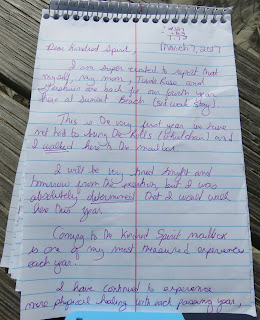 March 7, 2017
Dear Kindred Spirit,
I am super excited to report that
myself, my mom, Turtle Rose and
are back for our fourth year
here at Sunset Beach (set work story).
This is the very first year we have
not had to bring the Kitts (wheelchair) and
I walked here to the mailbox.
I will be very tired tonight and
tomorrow from the exertion, but I was
absolutely determined that I would walk
here this year.
Coming to the Kindred Spirit mailbox
is one of my most treasured experiences
each year.
I have continued to experience
more physical healing with each passing year,